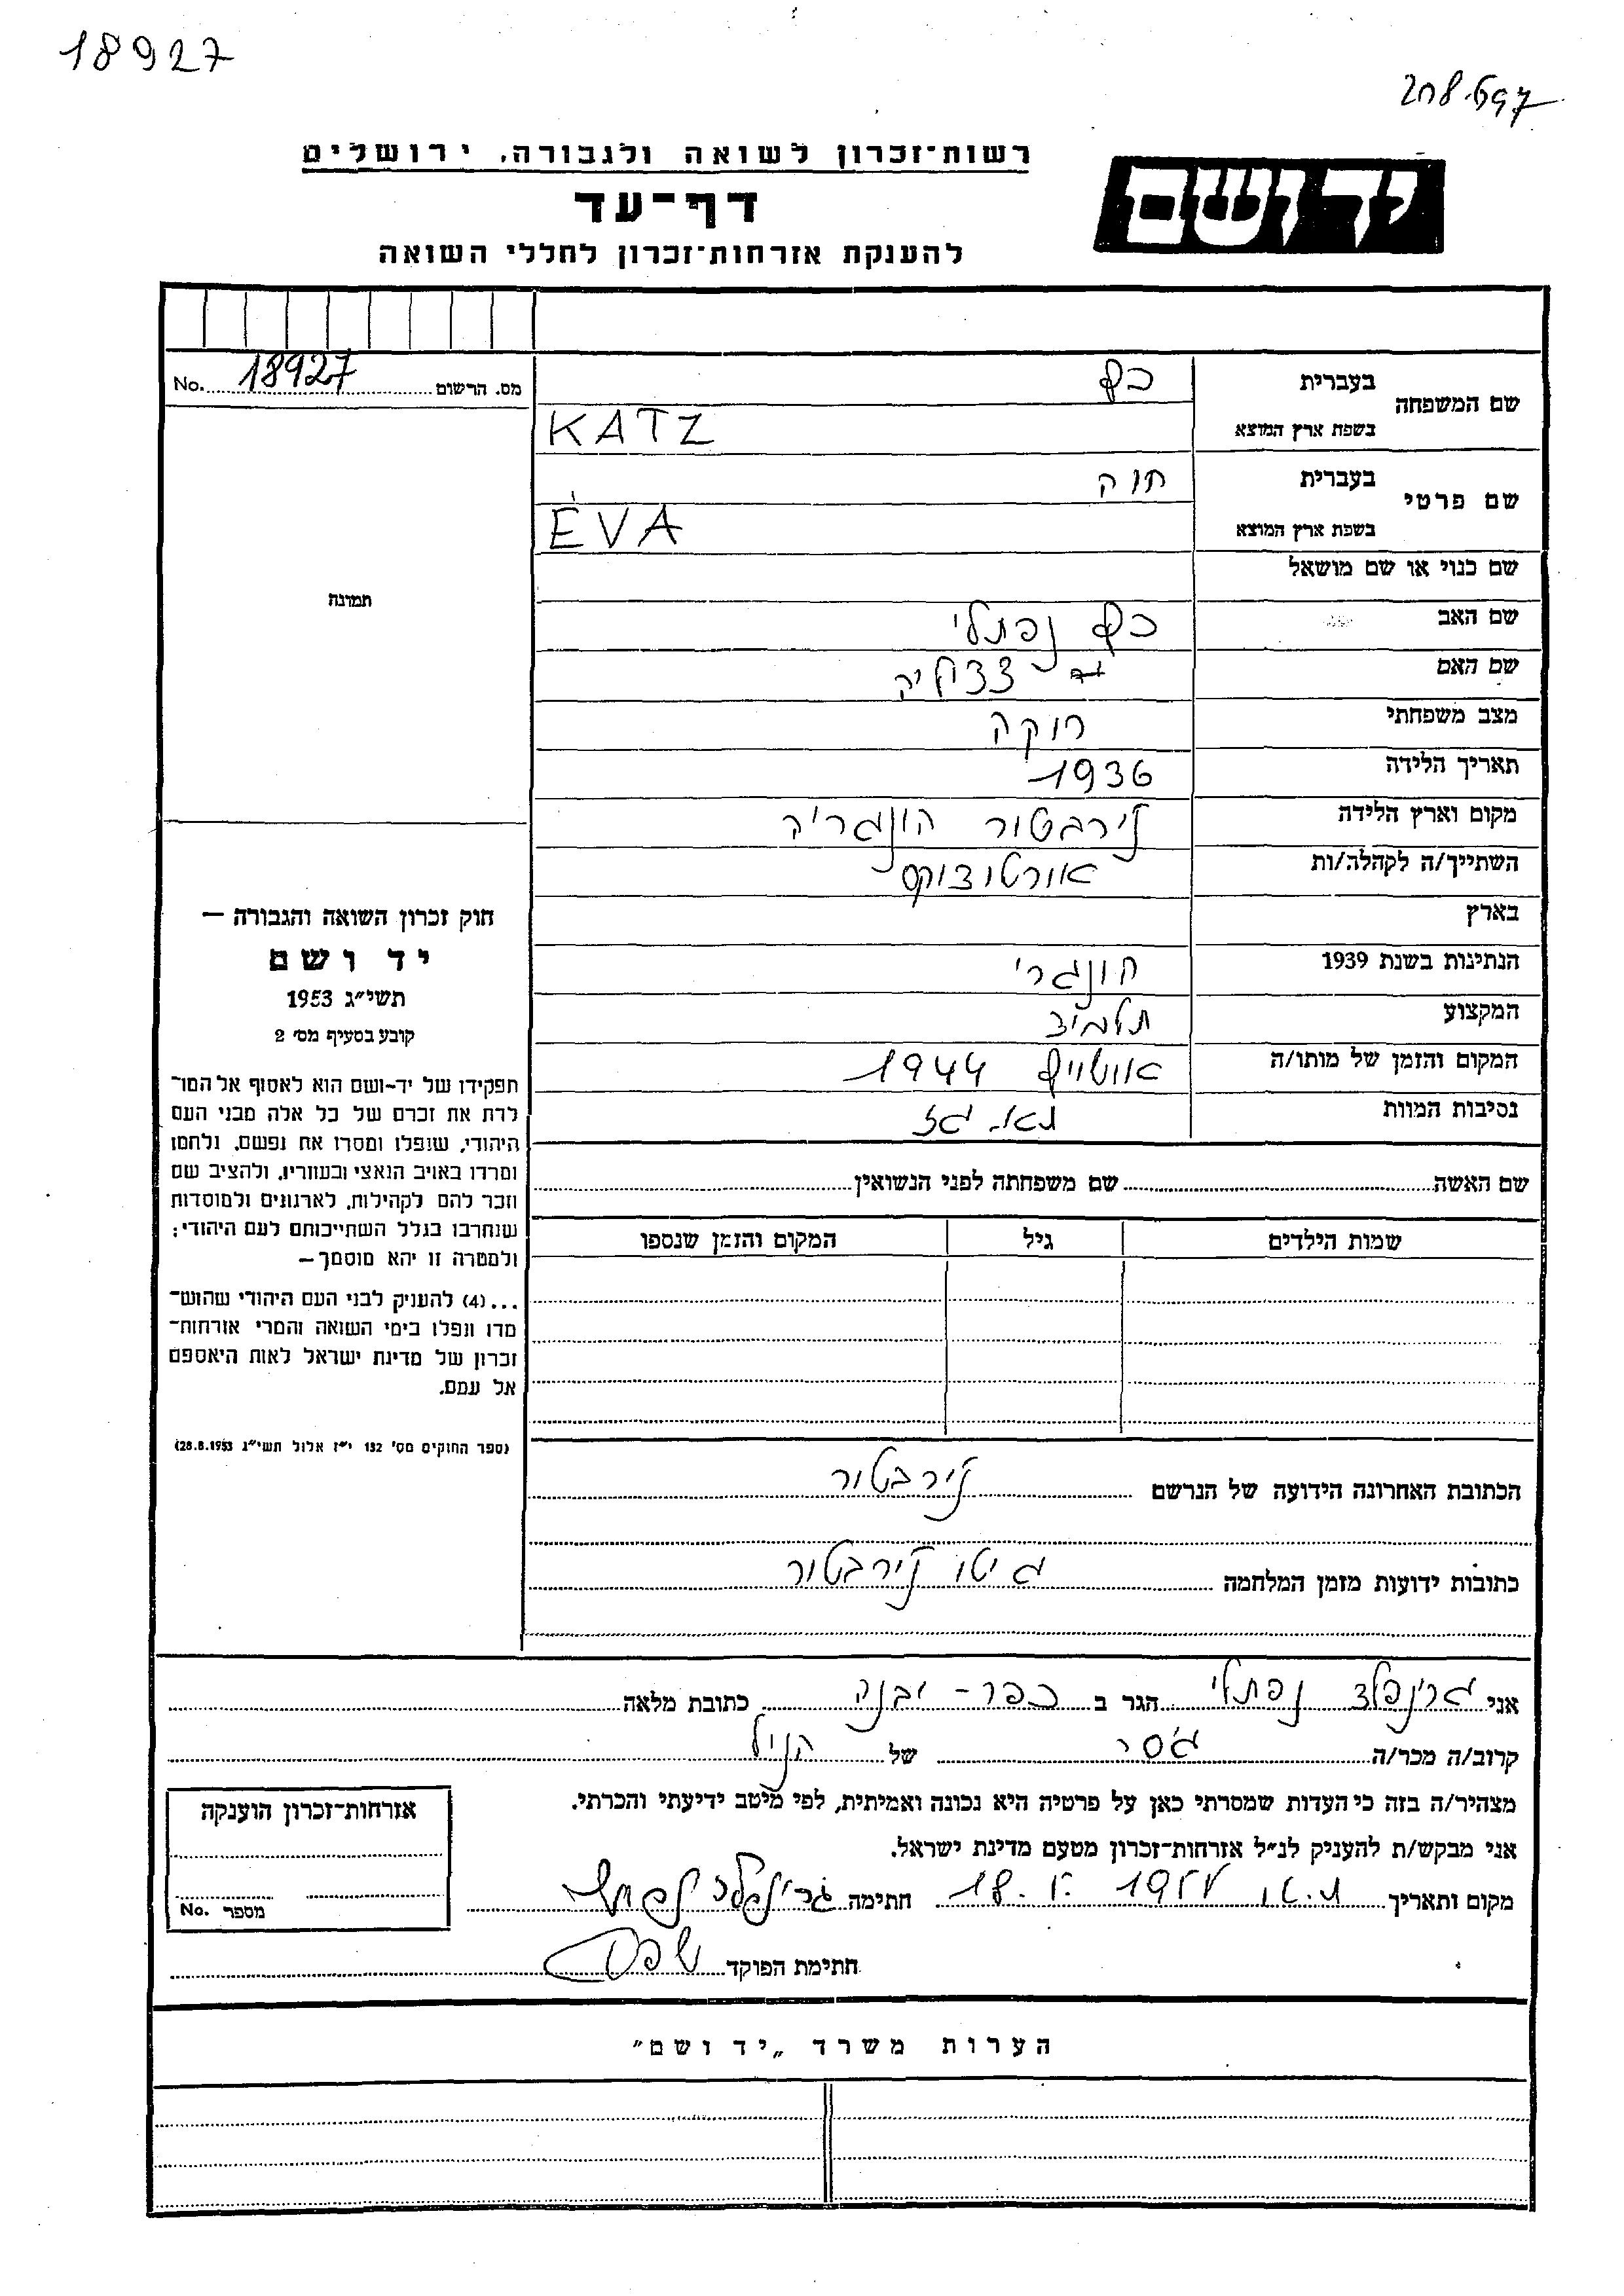 18927
208.697
רשות־זכרון לשואה ולגבורה, ירושלים
יד ושם
דף־עד
להענקת אזרחות־זכרון לחללי השואה
No. 18927 מס. הרשום
שם המשפחה
בעברית כץ
בשפת ארץ המוצא KATZ
שם פרטי
בעברית חוה
בשפת ארץ המוצא ÉVA
שם כנוי או שם מושאל
שם האב כץ נפתלי
שם האם צציליה
מצב משפחתי רוקה
תאריך הלידה 1936
מקום וארץ הלידה נירבטור הונגריה
השתייך/ה לקהלה/ות אורטודוקס
בארץ
הנתינות בשנת 1939 הונגרי
המקצוע תלמיד
המקום והזמן של מותו/ה אושויץ 1944
נסיבות המוות תא. גז
תמונה
חוק זכרון השואה והגבורה —
יד ושם
תשי״ג 1953
קובע בסעיף מס׳ 2
תפקידו של יד-ושם הוא לאסוף אל המו־
לדת את זכרם של כל אלה מבני העם
היהודי, שנפלו ומסרו את נפשם, נלחמו
ומרדו באויב הנאצי ובעוזריו, ולהציב שם
וזכר להם לקהילות, לארגונים ולמוסדות
שנחרבו בגלל השתייכותם לעם היהודי;
ולמטרה זו יהא מוסמך—
...(4) להעניק לבני העם היהודי שהוש־
מדו ונפלו בימי השואה והמרי אזרחות־
זכרון של מדינת ישראל לאות היאספם
אל עמם.
(ספר החוקים מס׳ 132 י״ז אלול תשי״ג 28.8.1953)
שם האשה שם משפחתה לפני הנשואין
שמות הילדים גיל המקום והזמן שנספו
הכתובת האחרונה הידועה של הנרשם נירבטור
כתובות ידועות מזמן המלחמה גיטו נירבטור
אני גרינפלד נפתלי הגר ב כפר - יבנה כתובת מלאה
קרוב/ה מכר/ה גסר של הניל
מצהיר/ה בזה כי העדות שמסרתי כאן על פרטיה היא נכונה ואמיתית, לפי מיטב ידיעתי והכרתי.
אני מבקש/ת להעניק לנ״ל אזרחות־זכרון מטעם מדינת ישראל.
מקום ותאריך חתימה גרינפלד נפתלי
חתימת הפוקד
אזרחות־זכרון הוענקה
No. מספר
הערות משרד „יד ושם״